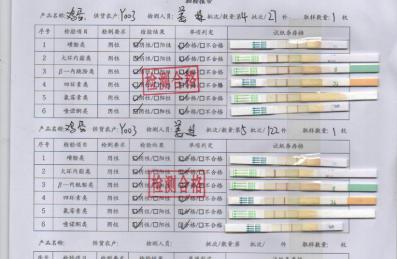 检验报告
产品名称: 鸡蛋 供货农户: Y003 检测人员: 批次/数量: 84 批次/ 27 件 取样数量: 1 枚
序号 检验项目 检测要求 检验结果 单项判定 试纸条存档
1 磺胺类 阴性 ☑阴性/□阳性 ☑合格/□不合格
2 大环内酯类 阴性 ☑阴性/□阳性 ☑合格/□不合格
3 β-内酰胺类 阴性 ☑阴性/□阳性 ☑合格/□不合格
4 四环素类 阴性 ☑阴性/□阳性 ☑合格/□不合格
5 氟苯尼类 阴性 ☑阴性/□阳性 ☑合格/□不合格
6 喹诺酮类 阴性 ☑阴性/□阳性 ☑合格/□不合格
检测合格
产品名称: 鸡蛋 供货农户: Y003 检测人员: 批次/数量: 85 批次/ 122 件 取样数量: 1 枚
序号 检验项目 检测要求 检验结果 单项判定 试纸条存档
1 磺胺类 阴性 ☑阴性/□阳性 ☑合格/□不合格
2 大环内酯类 阴性 ☑阴性/□阳性 ☑合格/□不合格
3 β-内酰胺类 阴性 ☑阴性/□阳性 ☑合格/□不合格
4 四环素类 阴性 ☑阴性/□阳性 ☑合格/□不合格
5 氟苯尼类 阴性 ☑阴性/□阳性 ☑合格/□不合格
6 喹诺酮类 阴性 ☑阴性/□阳性 ☑合格/□不合格
检测合格
产品名称: 供货农户: 检测人员: 批次/数量: 批次/ 件 取样数量: 枚
序号 检验项目 检测要求 检验结果 单项判定 试纸条存档